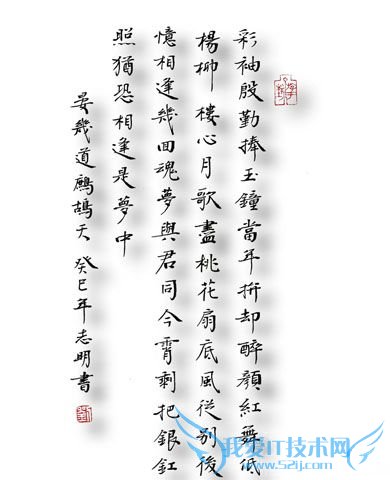 彩袖殷勤捧玉鐘當年拚却醉顏紅舞低
楊柳樓心月歌盡桃花扇底風從別後
憶相逢幾回魂夢與君同今宵剩把銀釭
照猶恐相逢是夢中
晏幾道鷓鴣天 癸巳年志明書
我爱IT技术网
www.52ij.com